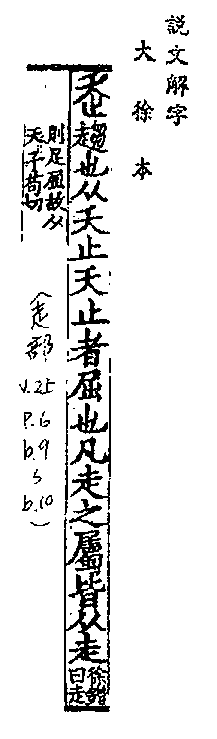 說文解字
大徐本
走趨也从夭止夭止者屈也凡走之屬皆从走徐鍇曰走
則足屈故从夭子苟切
(走部
V.25
P.6
b.9
s
b.10
)